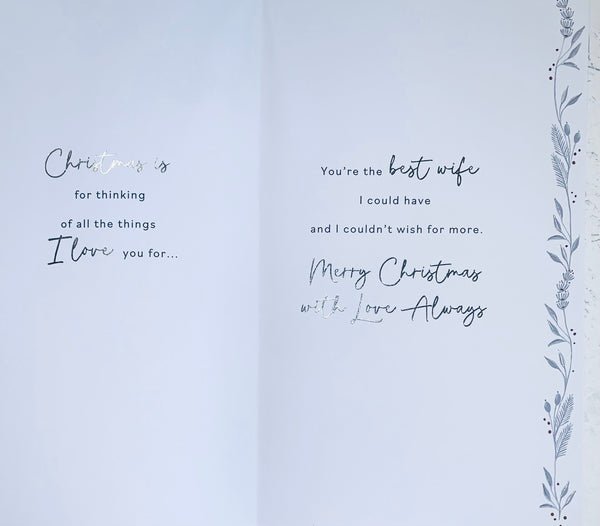 Christmas is
for thinking
of all the things
I love you for...
You're the best wife
I could have
and I couldn't wish for more.
Merry Christmas
with Love Always